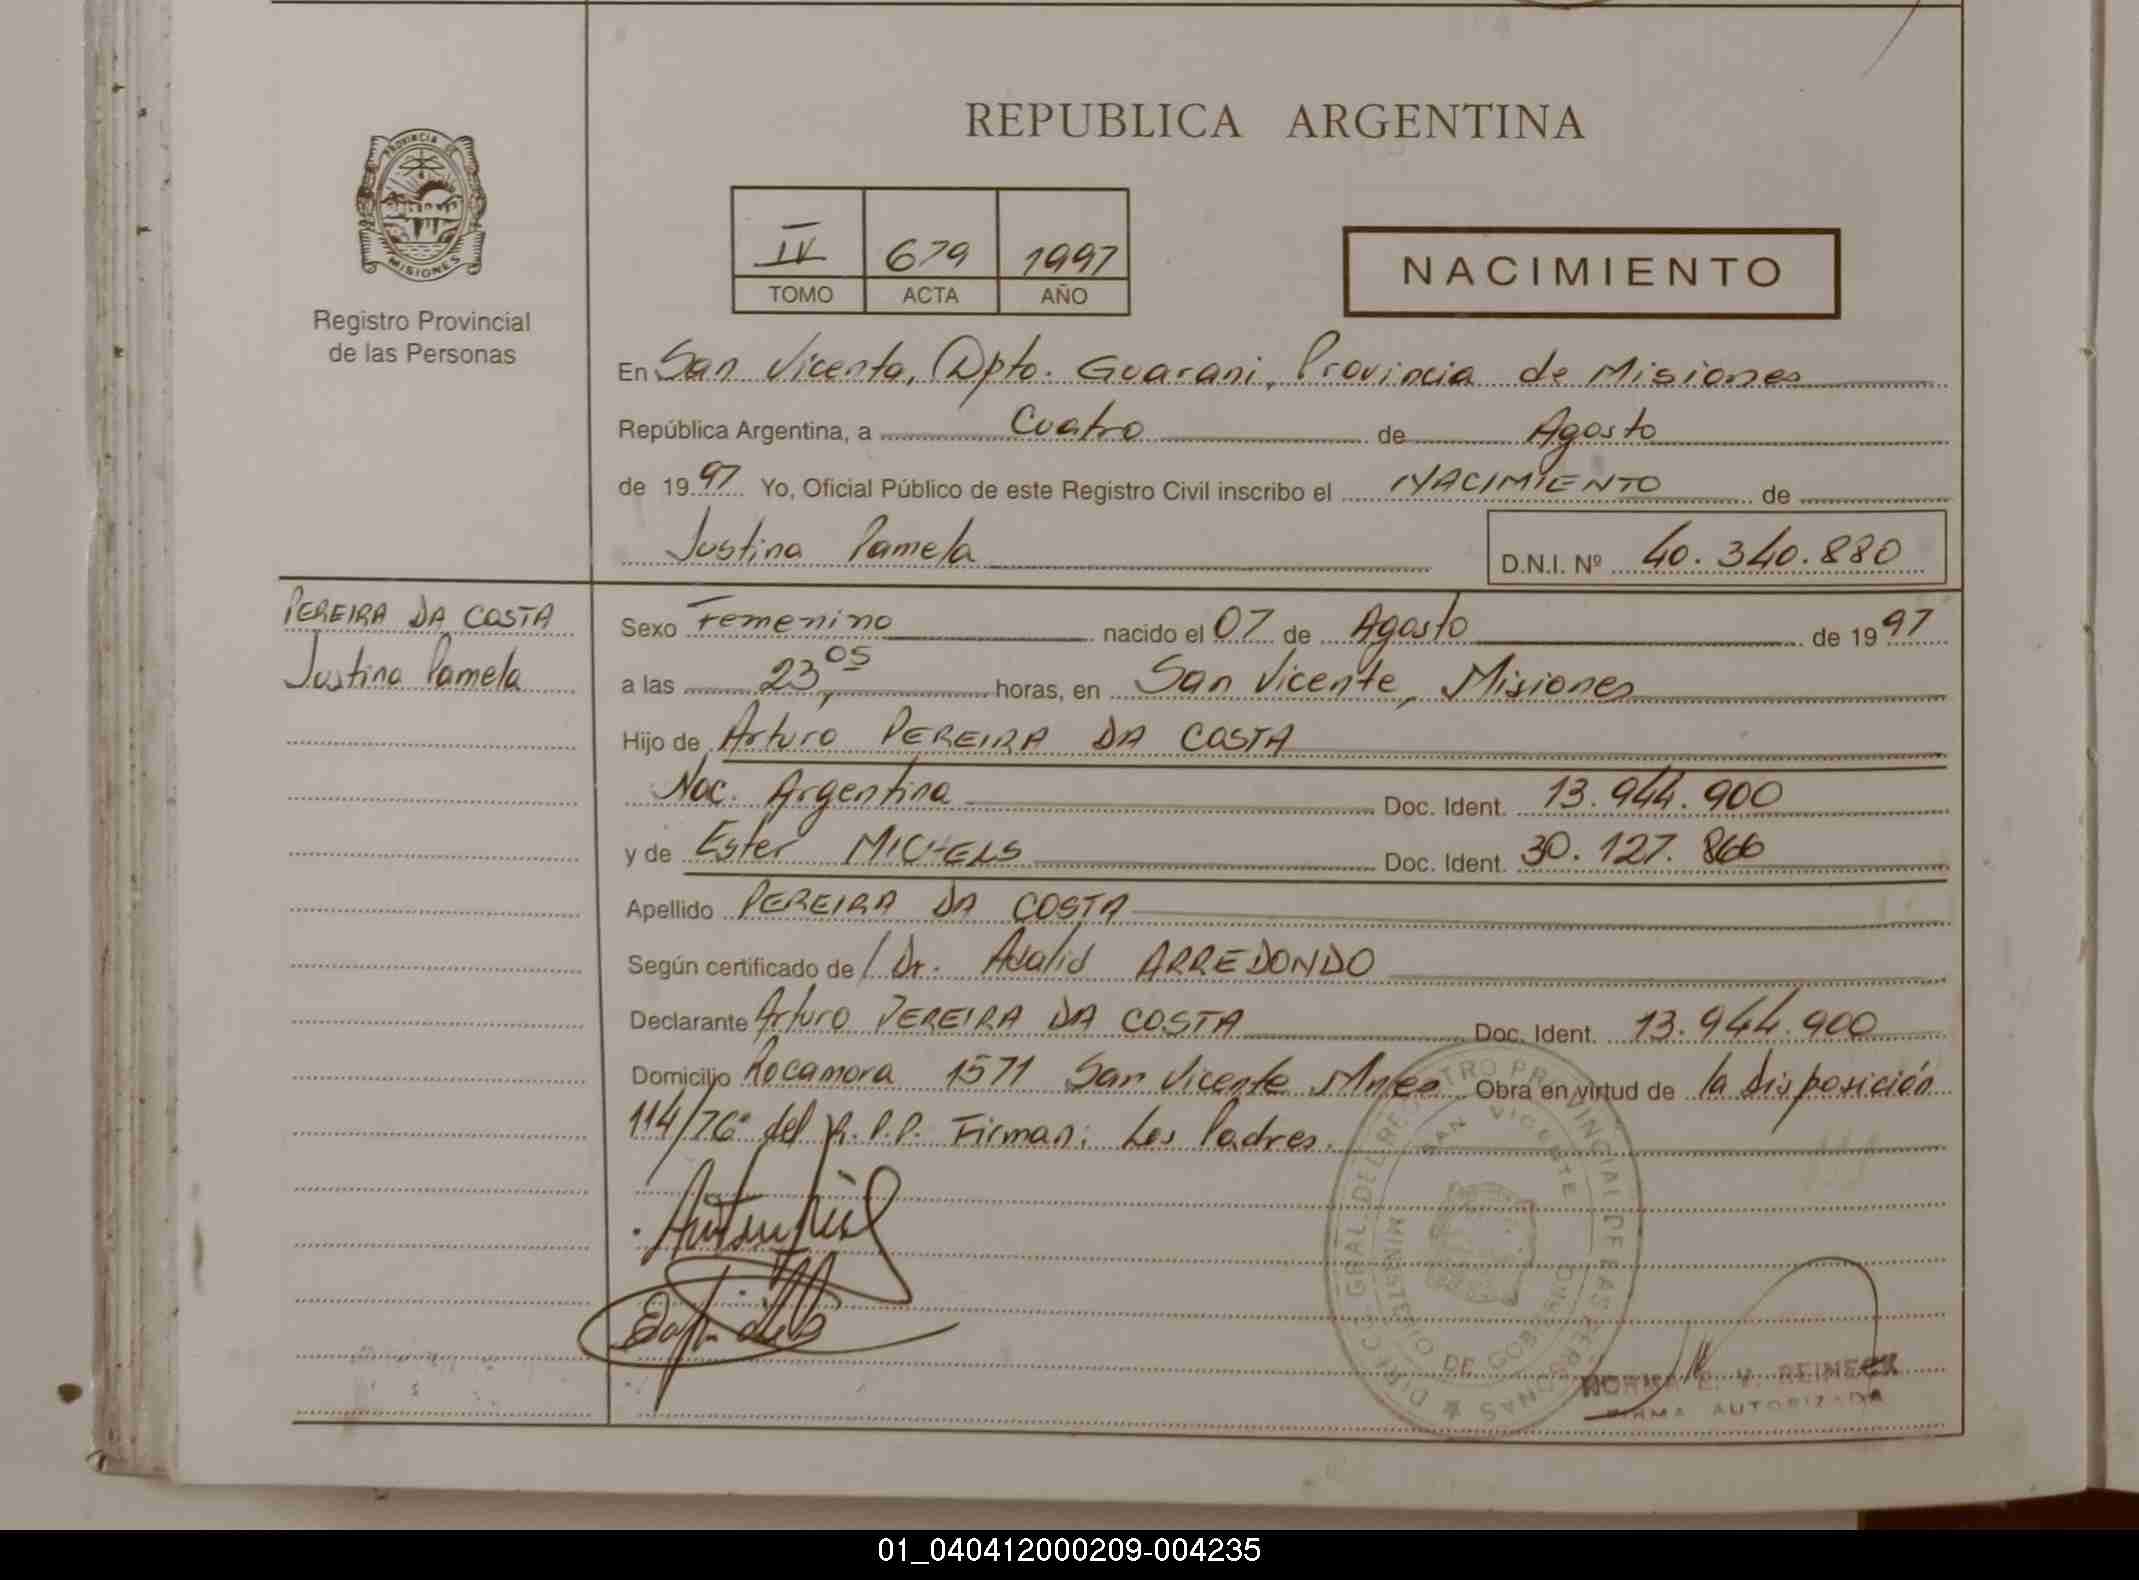 REPUBLICA ARGENTINA
PROVINCIA DE
MISIONES
Registro Provincial
de las Personas
IV 679 1997
TOMO ACTA AÑO
NACIMIENTO
En San Vicente, Dpto. Guarani, Provincia de Misiones
República Argentina, a Cuatro de Agosto
de 1997 Yo, Oficial Público de este Registro Civil inscribo el NACIMIENTO de
Justina Pamela D.N.I. Nº 40.340.880
PEREIRA DA COSTA
Justina Pamela
Sexo Femenino nacido el 07 de Agosto de 1997
a las 23,05 horas, en San Vicente, Misiones
Hijo de Arturo PEREIRA DA COSTA
Nac. Argentina Doc. Ident. 13.944.900
y de Ester MICHELS Doc. Ident. 30.127.866
Apellido PEREIRA DA COSTA
Según certificado de / Dr. ARREDONDO
Declarante Arturo PEREIRA DA COSTA Doc. Ident. 13.944.900
Domicilio Rocamora 1571 San Vicente Mnes Obra en virtud de la disposición
114/76 del R.P.P. Firman: Los Padres.
DIREC. GRAL. DEL REGISTRO PROVINCIAL DE LAS PERSONAS
SAN VICENTE
MINISTERIO DE GOBIERNO
NORMA E. V. REINECK
FIRMA AUTORIZADA
01_040412000209-004235